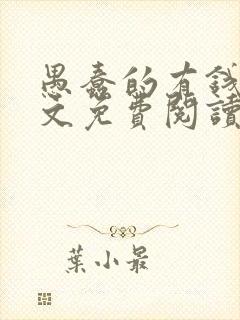 愚蠢的有錢
文免費閱讀
葉小最